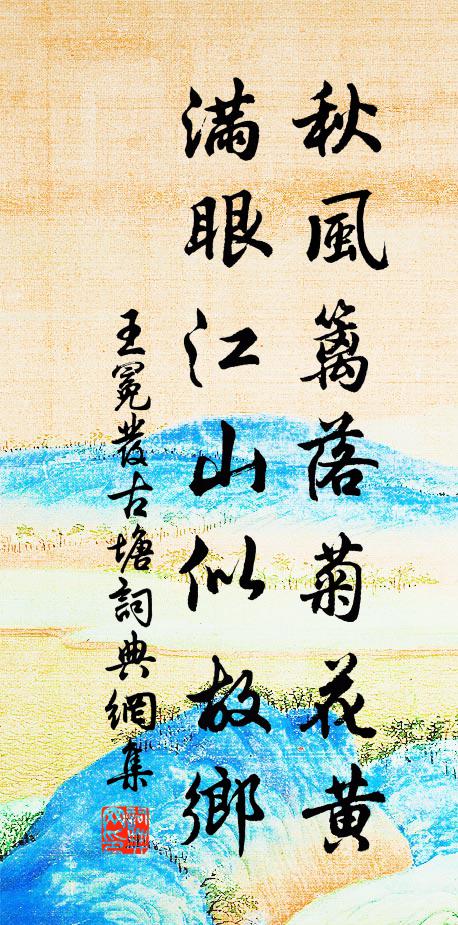 秋風籬落菊花黄
滿眼江山似故鄉
王冕發古塘詞典網集